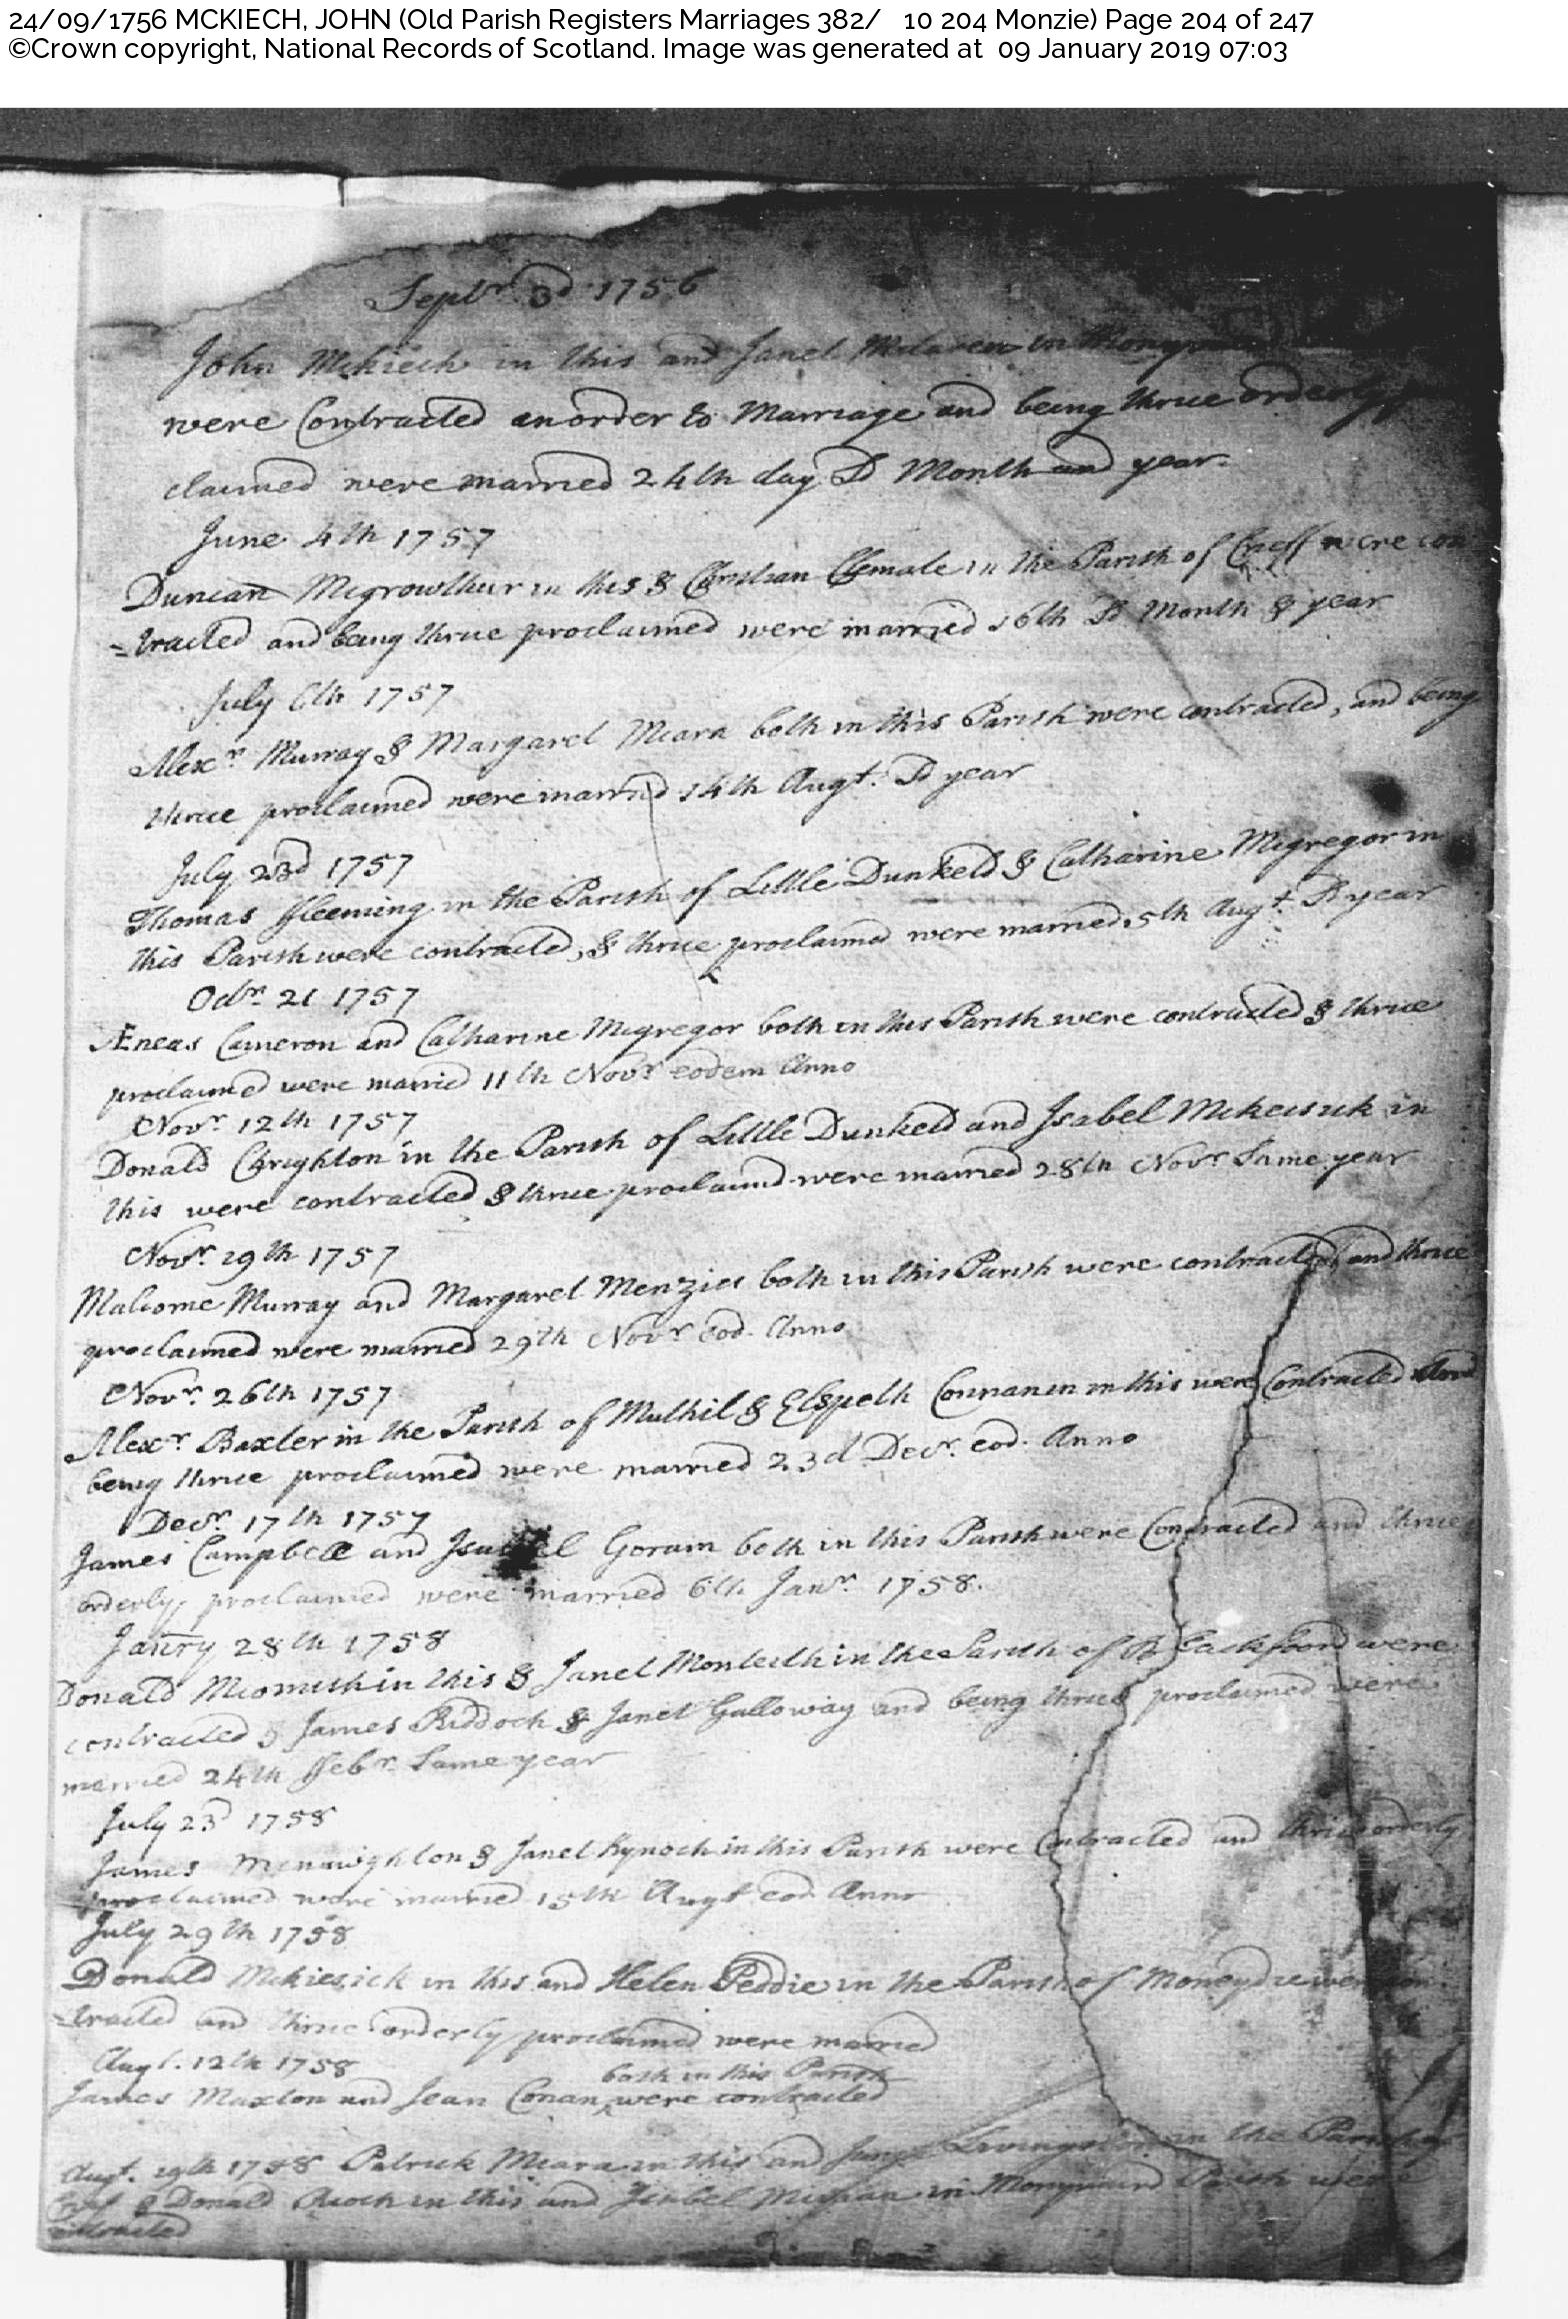 24/09/1756 MCKIECH, JOHN (Old Parish Registers Marriages 382/ 10 204 Monzie) Page 204 of 247
©Crown copyright, National Records of Scotland. Image was generated at 09 January 2019 07:03
Septr. 3d 1756
John Mckiech in this and Janet Mclaren in
were Contracted in order to Marriage and being thrice orderly
claimed were married 24th day Sd Month and year.
June 4th 1757
Duncan Mcgrowthur in this & Christian in the Parish of Crieff were con
=tracted and being thrice proclaimed were married 16th Sd Month & year
July 6th 1757
Alexr. Murray & Margaret Meara both in this Parish were contracted, and being
thrice proclaimed were married 14th Augt. Sd year
July 23d 1757
Thomas ffleeming in the Parish of Little Dunkeld & Catharine Mcgregor in
this Parish were contracted, & thrice proclaimed were married 5th Augt. Sd year
Octr. 21 1757
Æneas Cameron and Catharine Mcgregor both in this Parish were contracted & thrice
proclaimed were married 11th Novr eodem Anno
Novr. 12th 1757
Donald Chrighton in the Parish of Little Dunkeld and Isabel in
this were contracted & thrice proclaimd were married 28th Novr Same year
Novr. 19th 1757
Malcome Murray and Margaret Menzies both in this Parish were contracted, and thrice
proclaimed were married 29th Novr Eod. Anno
Novr. 26th 1757
Alexr. Baxter in the Parish of Muthil & Elspeth in this were Contracted And
being thrice proclaimed were married 23d Decr. eod. Anno
Decr. 17th 1757
James Campbell and Goram both in this Parish were Contracted and thrice
orderly proclaimed were married 6th Janr. 1758.
Janry 28th 1758
Donald in this & Janet Monteith in the Parish of Blackfoord were
contracted & James Riddoch & Janet Galloway and being thrice proclaimed were
married 24th ffebr. Same year
July 23d 1758
James Mcnawghton & Janet Kynoch in this Parish were Contracted and thrice orderly
proclaimed were married 15th Augt eod. Anno
July 29th 1758
Donald Mckiesick in this and Helen Peddie in the Parish of Moneydie were con
=tracted and thrice orderly proclaimed were married
Augt. 12th 1758
both in this Parish
James Maxton and Jean Conan were contracted
Augt. 19th 1758 Patrick Meara in this and Livingston in the Parish of
Crief & Donald in this and Isabel in Parish were
contracted